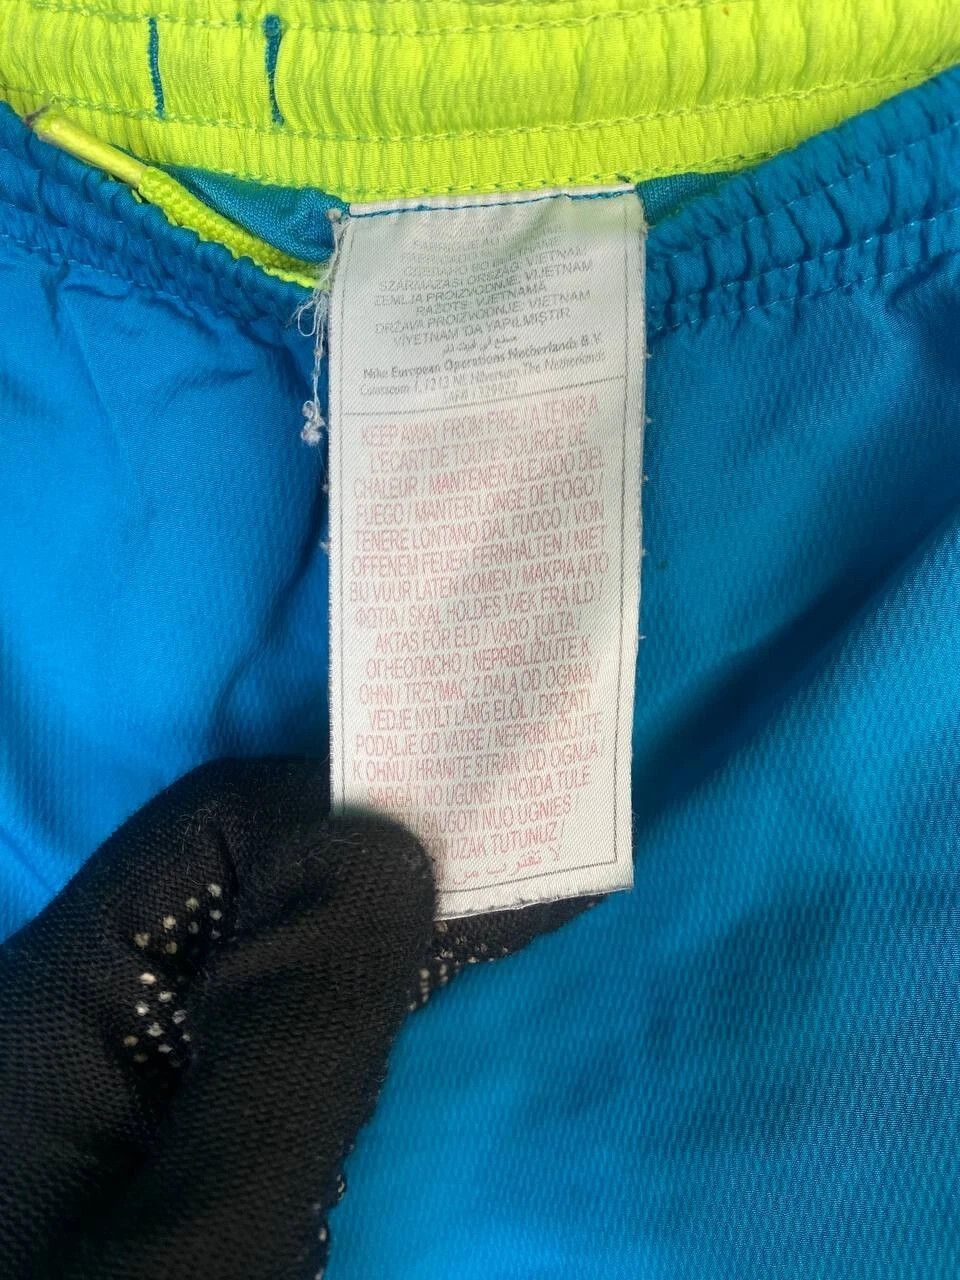 FABRIQUÉ AU
SZÁRMAZÁSI ORSZÁG: VIETNAM
ZEMLJA PROIZVODNJE: VIJETNAM
RAŽOTS: VJETNAMĀ
DRŽAVA PROIZVODNJE: VIETNAM
VİYETNAM'DA YAPILMIŞTIR
صنع في فيتنام
Nike European Operations Netherlands B.V.
Colosseum 1, 1213 NL Hilversum, The Netherlands
KEEP AWAY FROM FIRE / A TENIR A
L'ECART DE TOUTE SOURCE DE
CHALEUR / MANTENER ALEJADO DEL
FUEGO / MANTER LONGE DE FOGO /
TENERE LONTANO DAL FUOCO / VON
OFFENEM FEUER FERNHALTEN / NIET
BIJ VUUR LATEN KOMEN / ΜΑΚΡΙΑ ΑΠΟ
ΦΩΤΙΑ / SKAL HOLDES VÆK FRA ILD
AKTAS FÖR ELD / VARO TULTA /
ОГНЕОПАСНО / NEPŘIBLIŽUJTE K
OHNI / TRZYMAĆ Z DALA OD OGNIA /
VEDJE NYÍLT LÁNG ELŐL / DRŽATI
PODALJE OD VATRE / NEPRIBLIŽUJTE
K OHŇU / HRANITE STRAN OD OGNJA /
SARGĀT NO UGUNS! / HOIDA TULE
SAUGOTI NUO UGNIES /
UZAK TUTUNUZ /
لا تقترب من